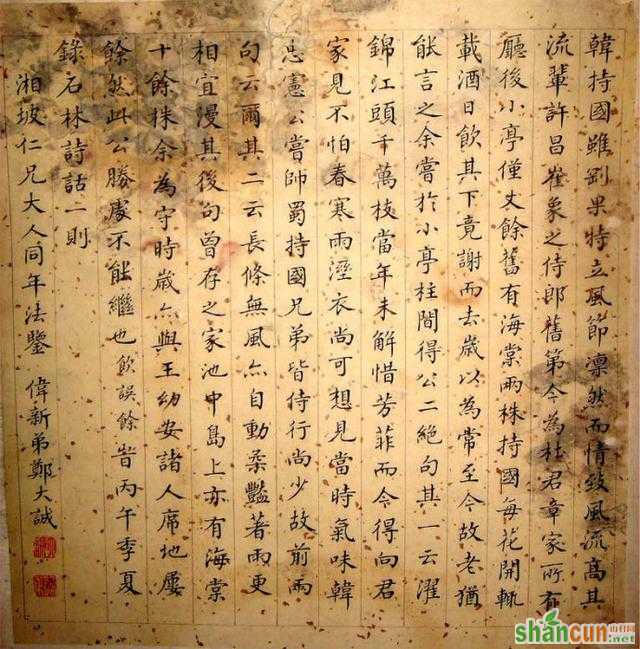 韓持國雖剛果特立風節凛然而情致風流髙其
流輩許昌崔象之侍郎舊第今為杜君章家所有
廳後小亭僅丈餘舊有海棠兩株持國每花開輒
載酒日飲其下竟謝而去歲以為常至今故老猶
能言之余嘗於小亭柱間得公二絕句其一云濯
錦江頭千萬枝當年未解惜芳菲而今得向君
家見不怕春寒雨溼衣尚可想見當時氣味韓
忠憲公嘗帥蜀持國兄弟皆侍行尚少故前兩
句云爾其二云長條無風亦自動柔豔著雨更
相宜漫其後句曾存之家池中島上亦有海棠
十餘株余為守時歲亦與王幼安諸人席地屢
飲然此公勝處不能繼也飲誤餘 時丙午季夏
錄石林詩話二則
湘坡仁兄大人同年法鑒 偉新弟鄭大誠
shancun.net
山村网